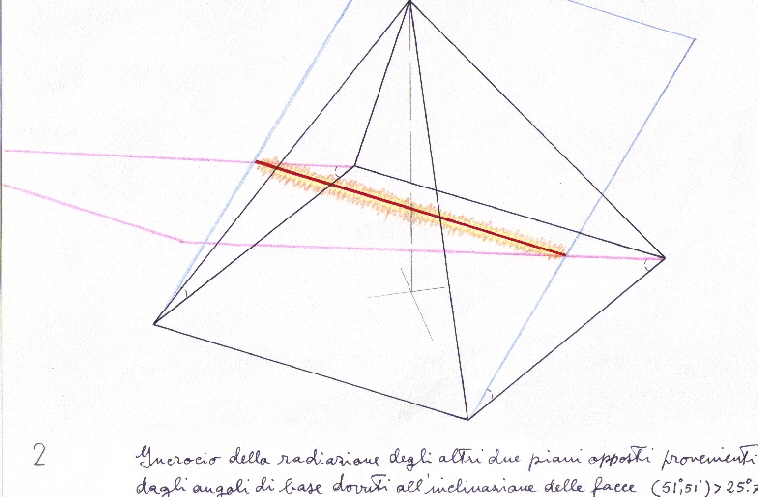 2
Incrocio della radiazione degli altri due piani opposti provenienti
dagli angoli di base dovuti all'inclinazione delle facce (51°51') > 25°